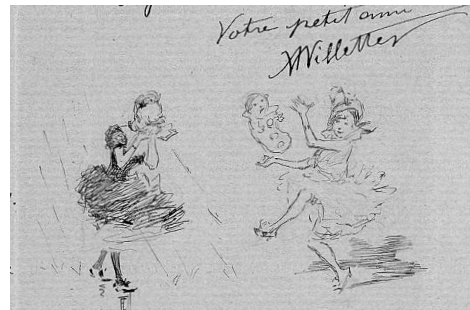 Votre petit ami
AWillette